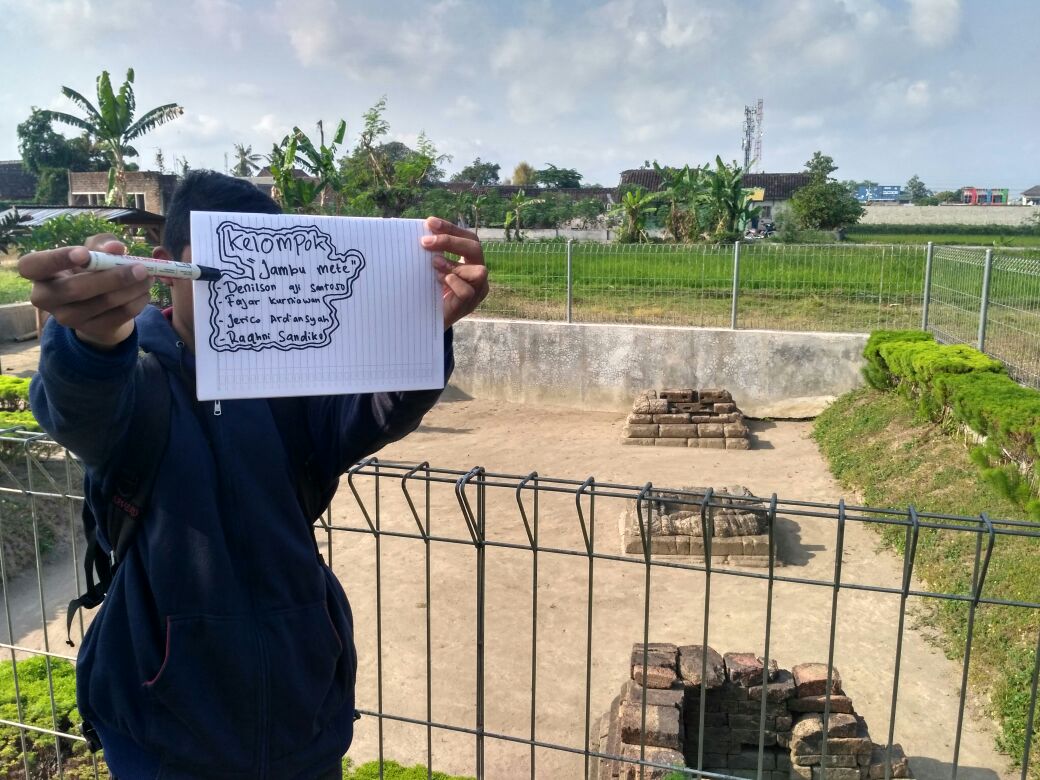 Kelompok
"Jambu mete"
- Denilson aji santoso
- Fajar kurniawan
- Jerico Ardiansyah
- Raghni Sandika